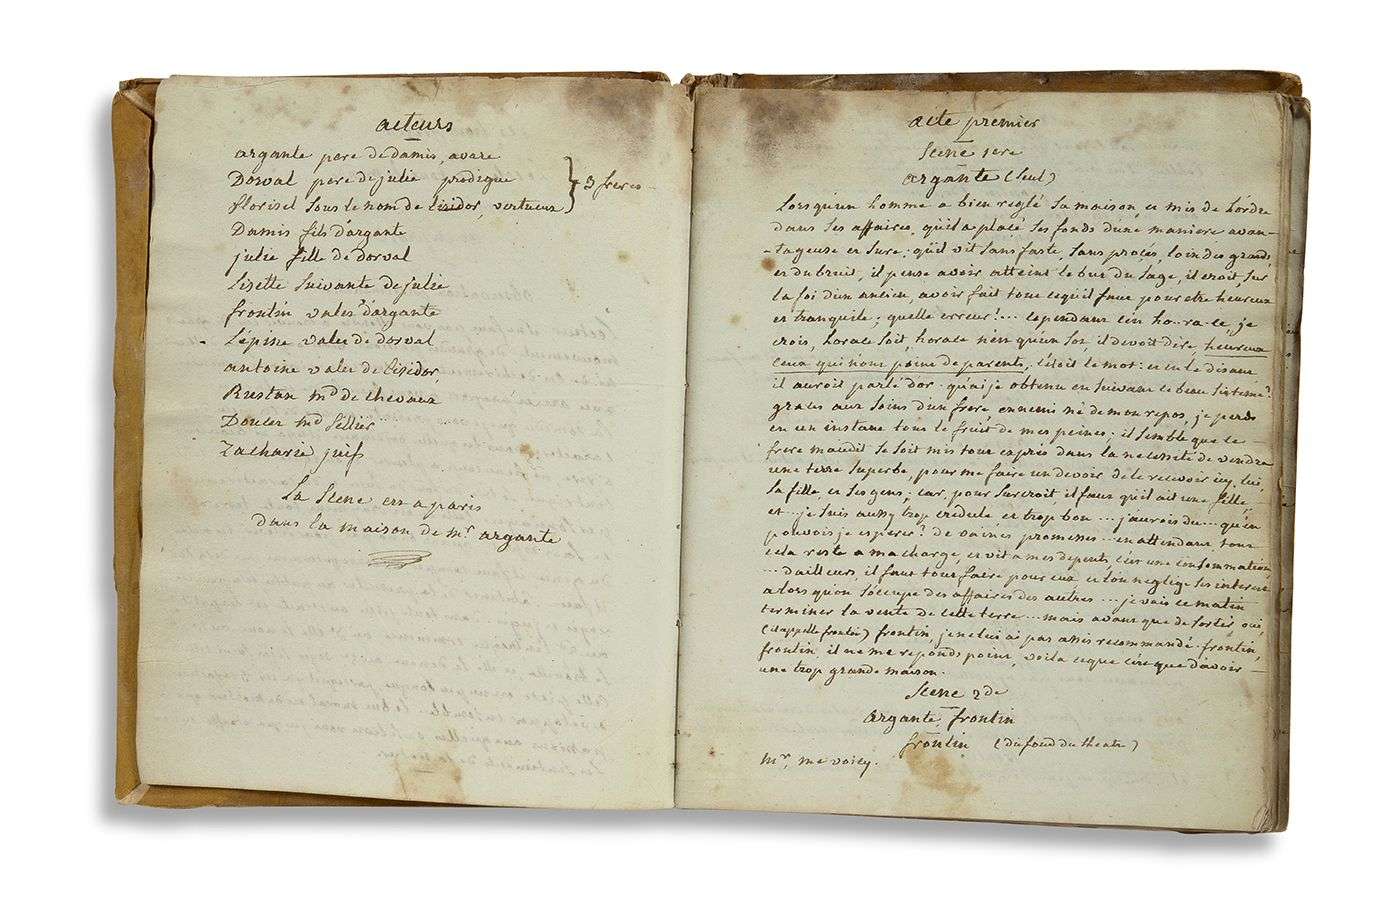 acteurs
argante pere de damis, avare
Dorval pere de julie prodigue
florisel sous le nom de lisidor, vertueux
} 3 freres
Damis fils d'argante
julie fille de dorval
lisette suivante de julie
frontin valet d'argante
l'épine valet de dorval
antoine valet de lisidor,
Rustan md de chevaux
Douler md sellier
Zacharie juif
la scene est a paris
dans la maison de mr argante
acte premier
scene 1ere
argante (seul)
lorsqu'un homme a bien reglé sa maison, et mis de l'ordre
dans ses affaires, qu'il a placé ses fonds d'une maniere avan-
-tageuse et sure; qu'il vit sans faste, sans procés, loin des grands
et du bruit, il pense avoir atteint le but du sage, il croit, sur
la foi d'un ancien, avoir fait tout ce qu'il faut pour etre heureux
et tranquile; quelle erreur!... cependant c'est ho..ra..ce, je
crois, horace soit, horace n'est qu'un sot il devoit dire, heureux
ceux qui n'ont point de parents, c'etoit le mot: et en le disant
il auroit parlé d'or: qu'ai je obtenu en suivant ce beau sisteme?
graces aux soins d'un frere, ennemi né de mon repos, je perds
en un instant tout le fruit de mes peines; il semble que ce
frere maudit se soit mis tout exprés dans la necessité de vendre
une terre superbe, pour me faire un devoir de le recevoir icy, lui,
sa fille, et ses gens; car, pour surcroit il faut qu'il ait une fille,
et... je suis aussy trop credule et trop bon... j'aurois du... qu'en
pouvois je esperer? de vaines promesses... en attendant tout
cela reste a ma charge, et vit a mes depents c'est une consommation
... d'ailleurs, il faut tout faire pour eux et l'on neglige ses interets
alors qu'on s'occupe des affaires des autres... je vais ce matin
terminer la vente de cette terre... mais avant que de sortir oui,
(il appelle frontin) frontin, je ne lui ai pas assés recommandé. frontin,
frontin, il ne me reponds point, voila ce que c'est que d'avoir
une trop grande maison.
scene 2de
argante, frontin
frontin (du fond du theatre)
mr, me voicy.